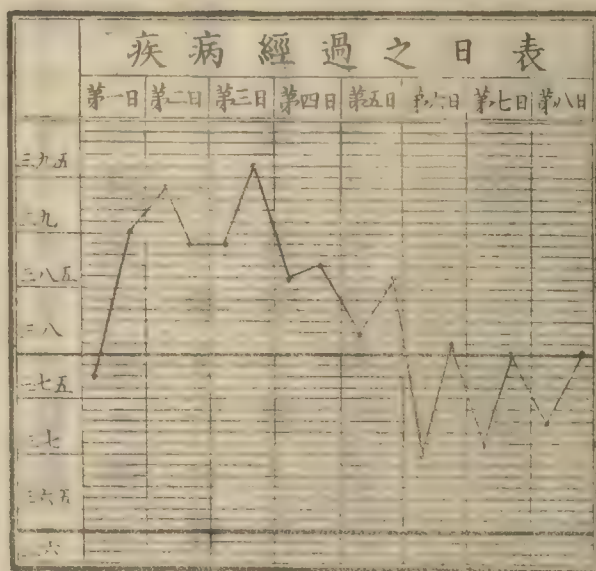 疾病經過之日表
第一日 第二日 第三日 第四日 第五日 第六日 第七日 第八日
三九五
三九
三八五
三八
三七五
三七
三六五
三六